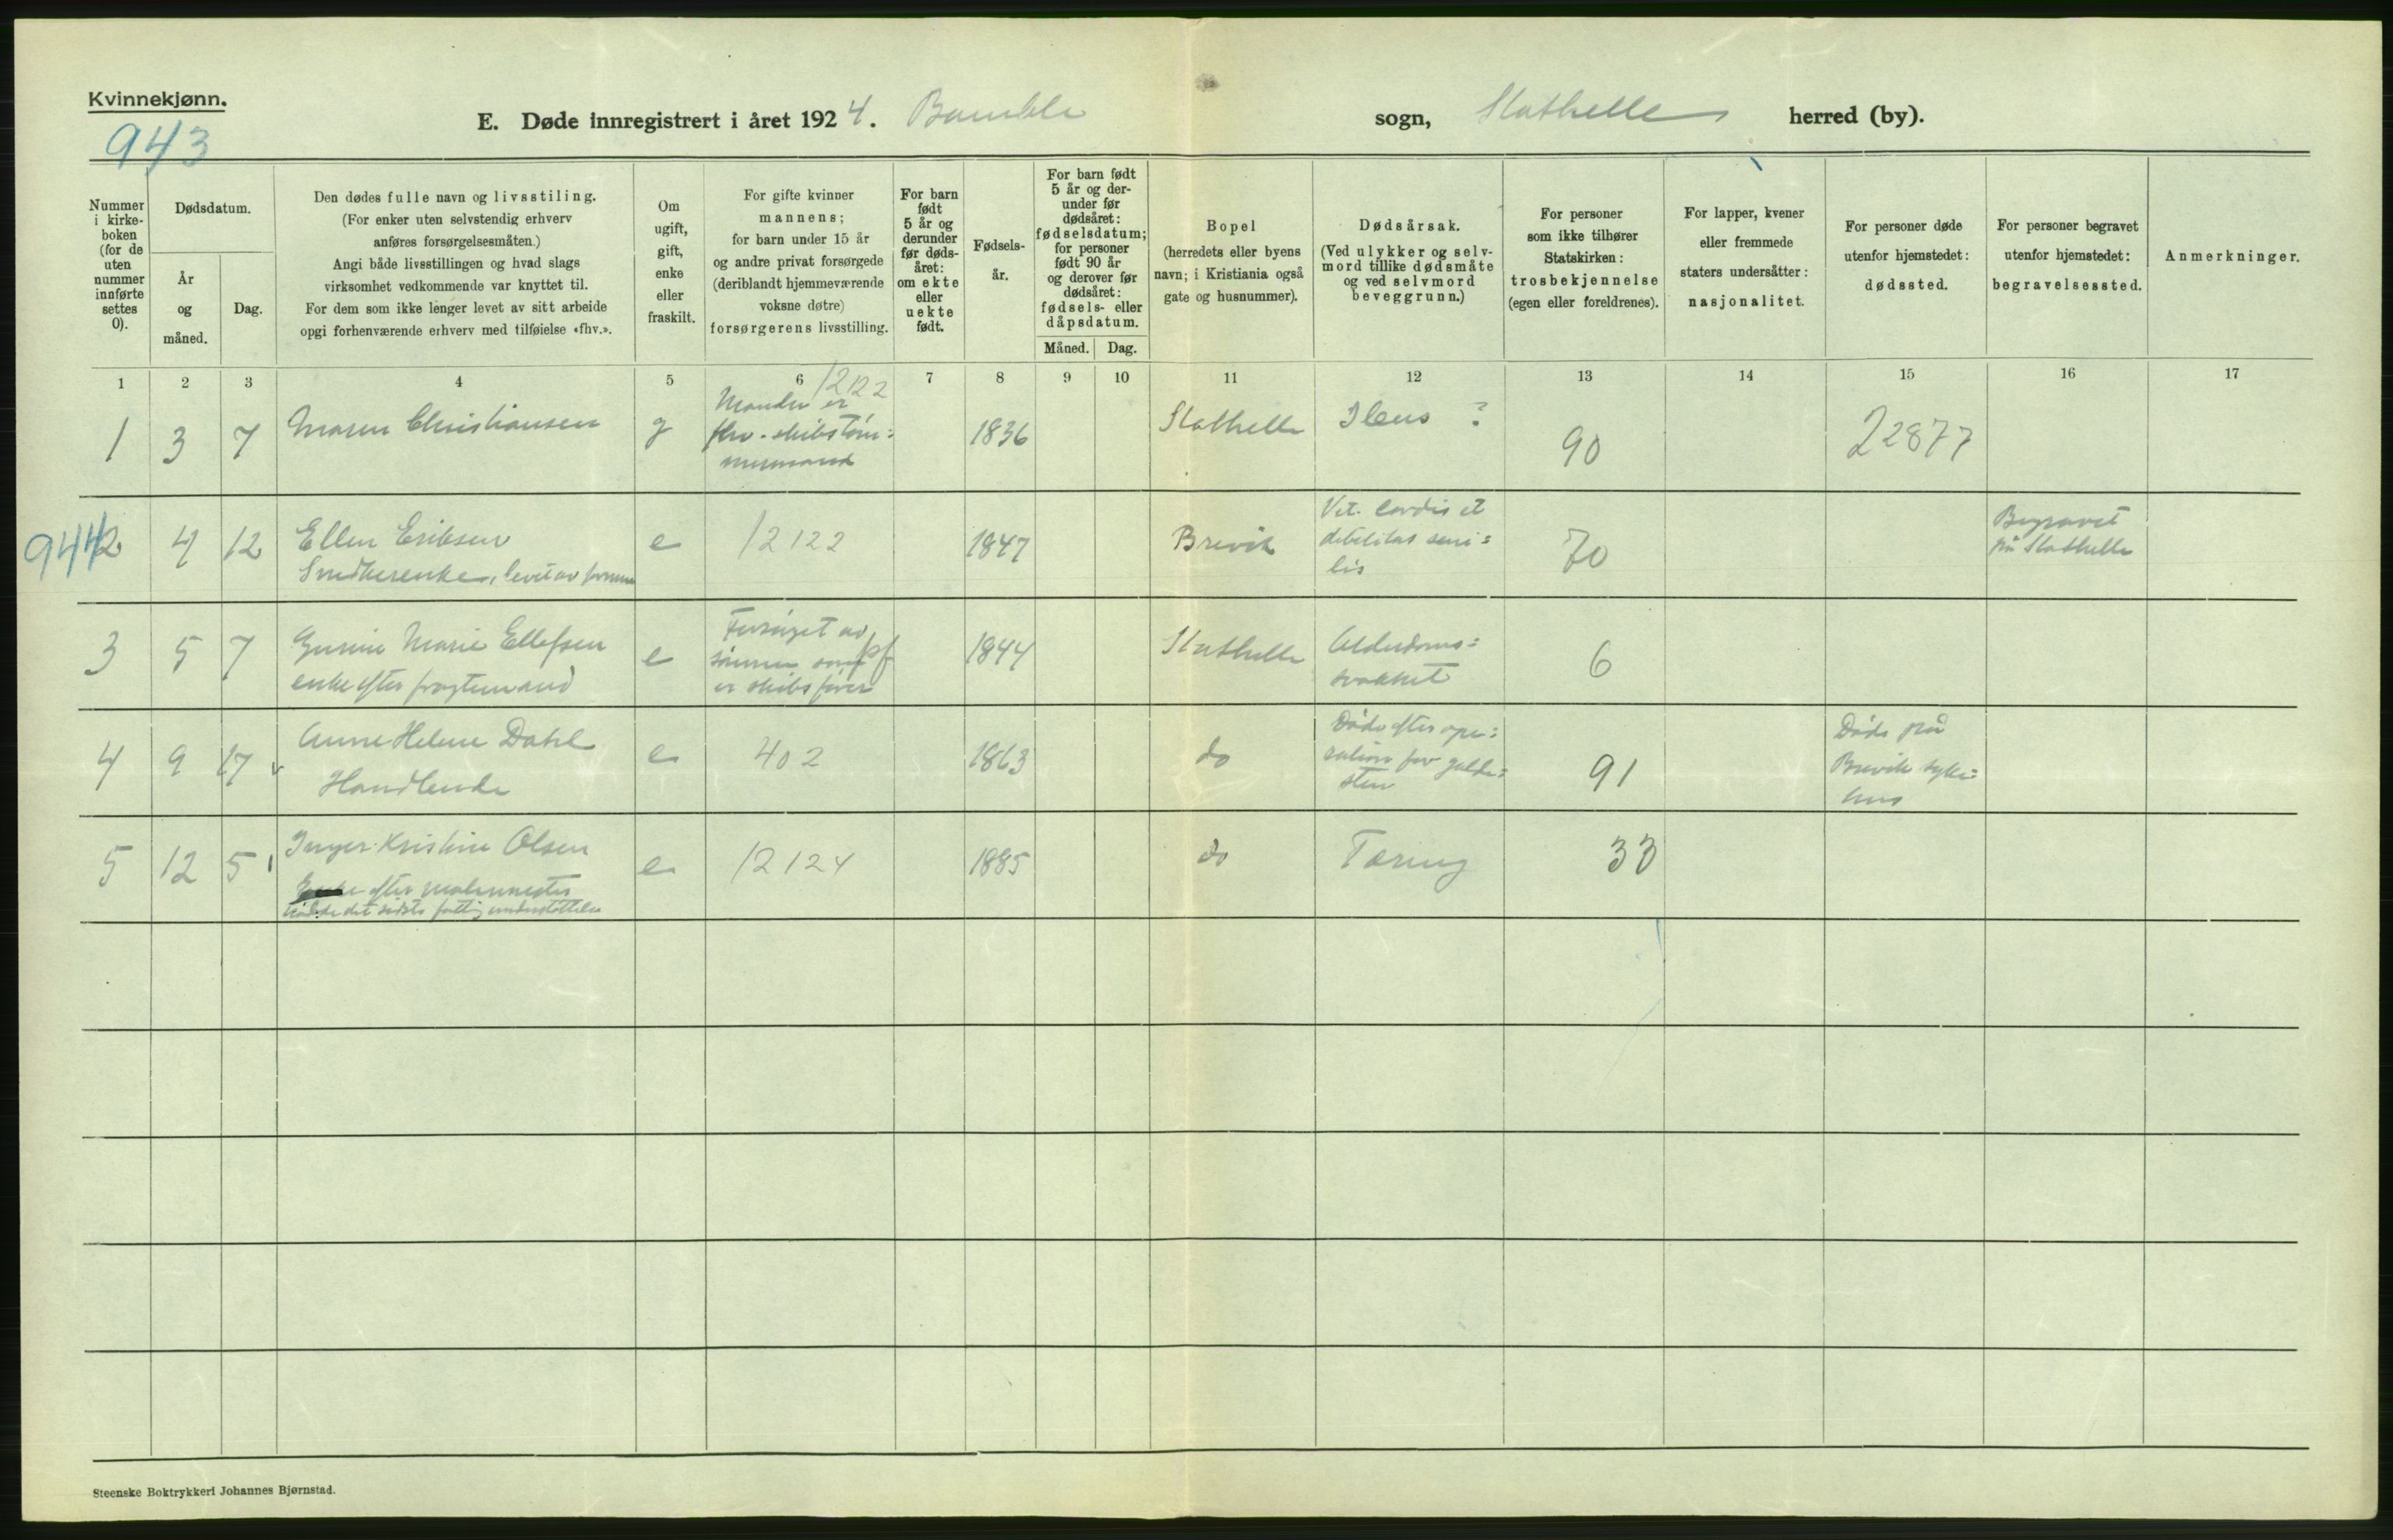 Kvinnekjønn.
943
E. Døde innregistrert i året 1924. Bamble sogn, Stathelle herred (by).
Nummer i kirke-boken (for de uten nummer innførte settes 0).
Dødsdatum.
År og måned.
Dag.
Den dødes fulle navn og livsstiling.
(For enker uten selvstendig erhverv
anføres forsørgelsesmåten.)
Angi både livsstillingen og hvad slags
virksomhet vedkommende var knyttet til.
For dem som ikke lenger levet av sitt arbeide
opgi forhenværende erhverv med tilføielse «fhv.».
Om
ugift,
gift,
enke
eller
fraskilt.
For gifte kvinner
mannens;
for barn under 15 år
og andre privat forsørgede
(deriblandt hjemmeværende
voksne døtre)
forsørgerens livsstilling.
For barn
født
5 år og
derunder
før døds-
året:
om ekte
eller
uekte
født.
Fødsels-
år.
For barn født
5 år og der-
under før
dødsåret:
fødselsdatum;
for personer
født 90 år
og derover før
dødsåret:
fødsels- eller
dåpsdatum.
Måned. Dag.
Bopel
(herredets eller byens
navn; i Kristiania også
gate og husnummer).
Dødsårsak.
(Ved ulykker og selv-
mord tillike dødsmåte
og ved selvmord
beveggrunn.)
For personer
som ikke tilhører
Statskirken:
trosbekjennelse
(egen eller foreldrenes).
For lapper, kvener
eller fremmede
staters undersåtter:
nasjonalitet.
For personer døde
utenfor hjemstedet:
dødssted.
For personer begravet
utenfor hjemstedet:
begravelsessted.
Anmerkninger.
1 2 3 4 5 6 7 8 9 10 11 12 13 14 15 16 17
12122
1 3 7 Maren Christiansen g Manden er
fhv. skibstøm:
mermand
1836 Stathelle Ileus ? 90 22877
944
2 4 12 Ellen Eriksen
Snedkerenke, levet av formue
e 12122 1847 Brevik Vit. cordis et
debilitas seni=
lis
70 Begravet
på Stathelle
3 5 7 Gurine Marie Ellefsen
enke efter fragtemand
e Forsørget av
sønnen som pf
er skibsfører
1844 Stathelle Alderdoms=
svakhet
6
4 9 17 Anne Helene Dahl
Handlende
e 402 1863 do Døde efter ope:
ration for galde=
sten
91 Døde på
Brevik syke=
hus
5 12 5 Inger Kristine Olsen
Enke efter malermester
det sidste fattigunderstøttelse
e 12124 1885 do Tæring 33
Steenske Boktrykkeri Johannes Bjørnstad.